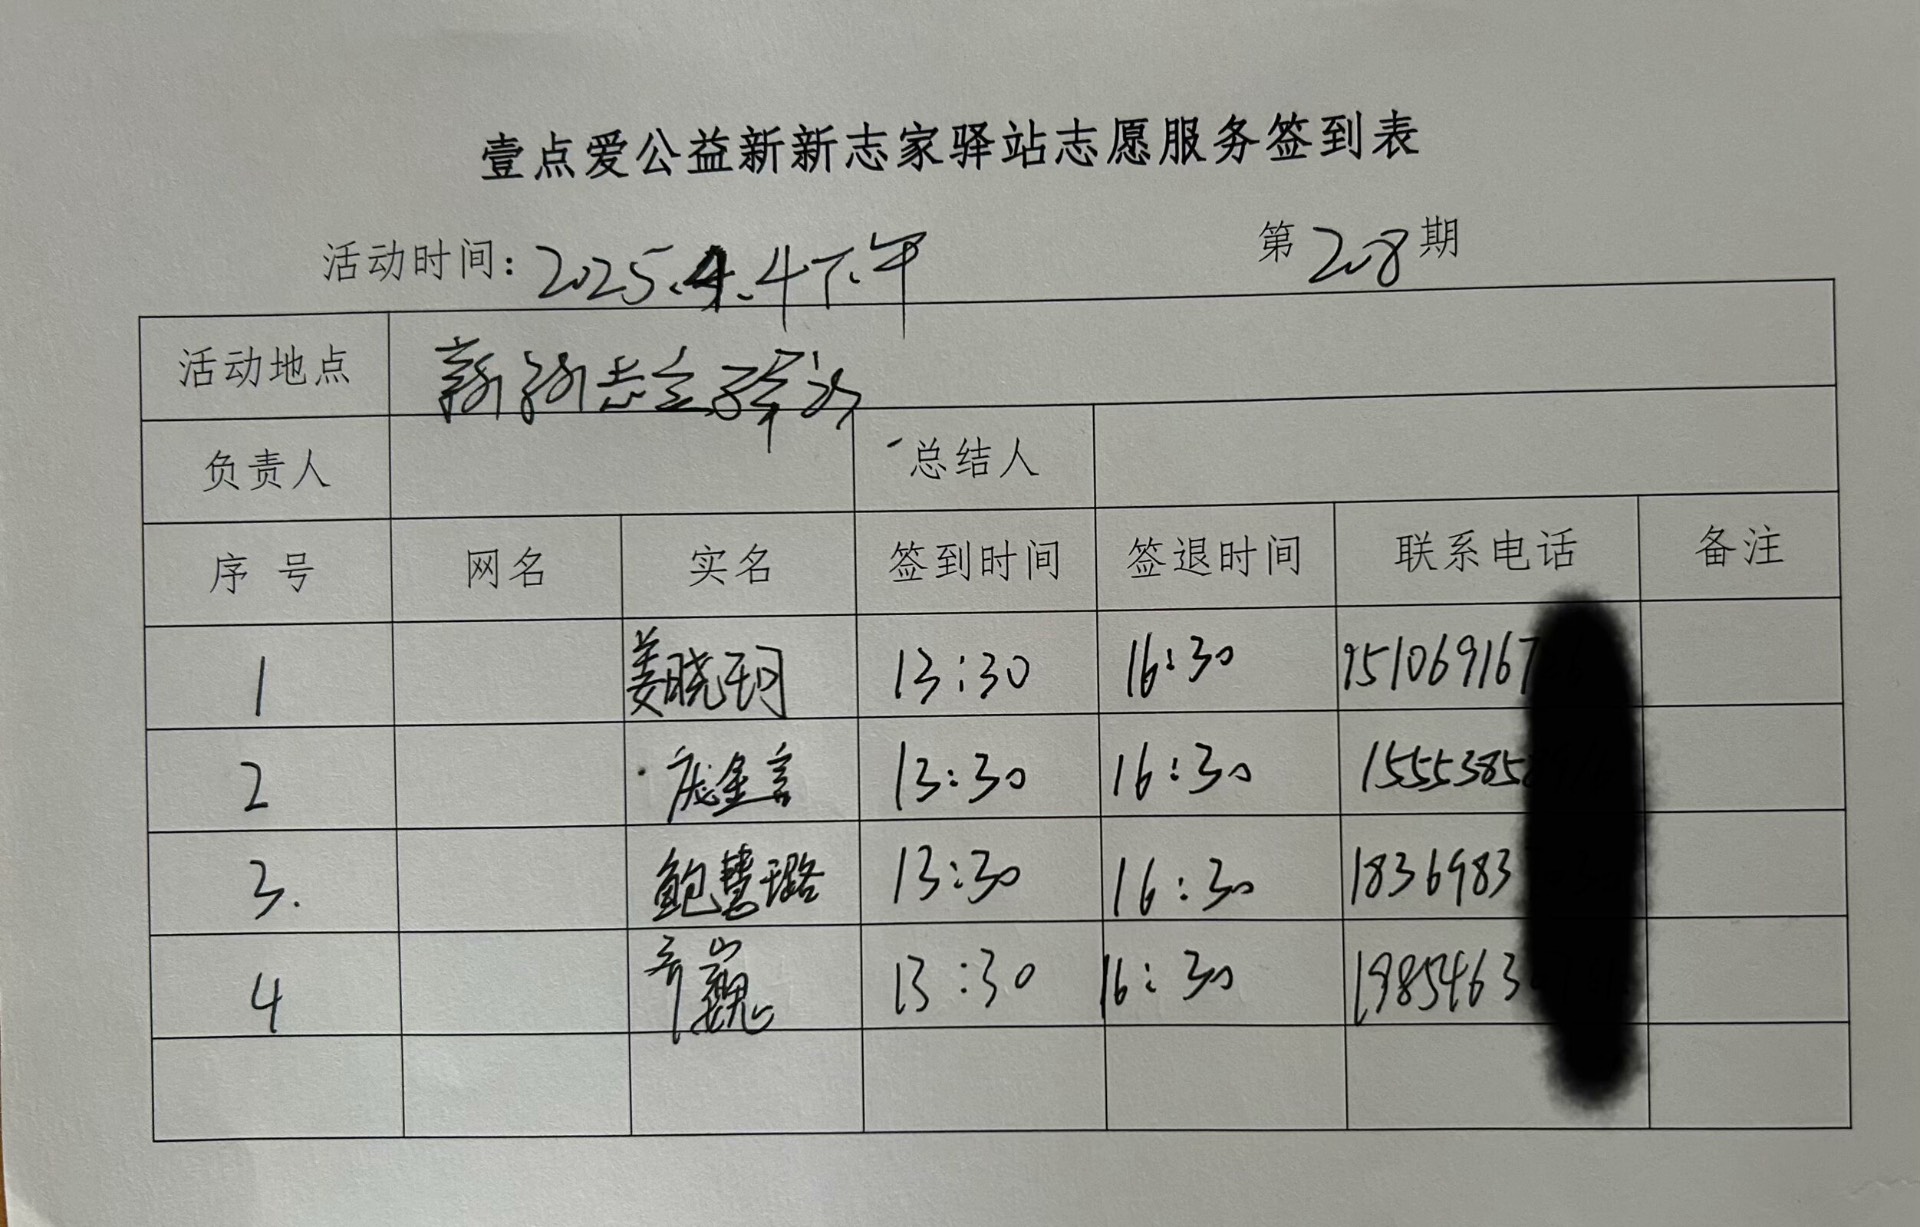 壹点爱公益新新志家驿站志愿服务签到表
活动时间: 2025.4.4下午 第208期
活动地点 新新志家驿站
负责人 总结人
序号 网名 实名 签到时间 签退时间 联系电话 备注
1 姜晓珂 13:30 16:30 951069167
2 庞金言 13:30 16:30 15553858
3. 鲍慧璐 13:30 16:30 1836983
4 齐巍 13:30 16:30 1985463